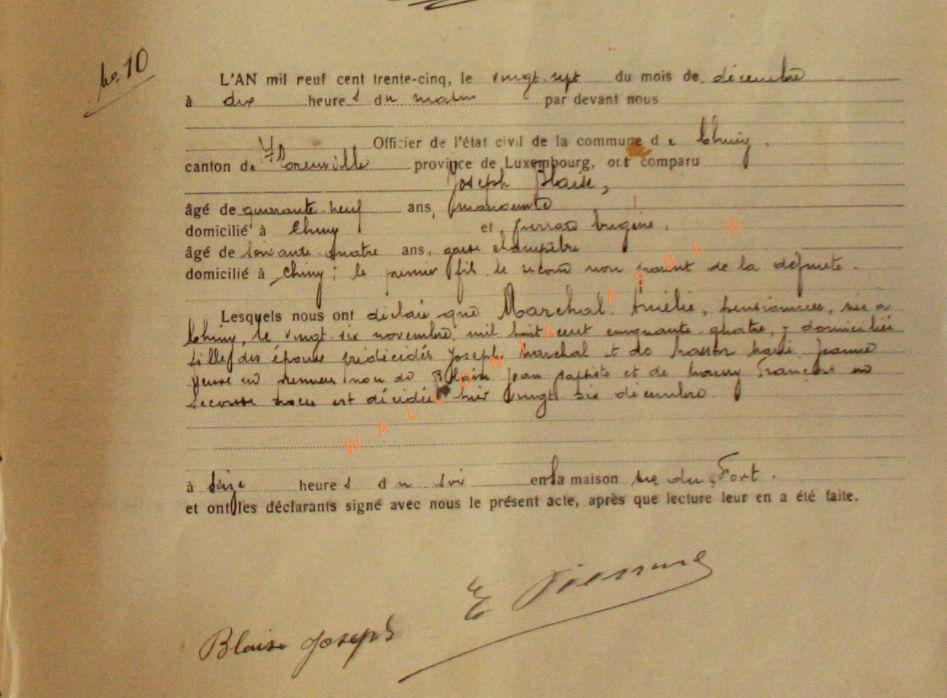 No 10
L'AN mil neuf cent trente-cinq, le vingt sept du mois de décembre
à dix heures du matin par devant nous
Officier de l'état civil de la commune de Chiny,
canton de Florenville province de Luxembourg, ont comparu
Joseph Blaise,
âgé de quarante neuf ans,
domicilié à Chiny et
âgé de soixante quatre ans, garde champêtre
domicilié à Chiny; le premier fils le second non parent de la défunte.
Lesquels nous ont déclaré que Marchal Amélie, pensionnée, née à
Chiny, le vingt six novembre mil huit cent cinquante quatre, y domiciliée
fille des époux prédécédés Joseph Marchal et de Marie Jeanne
veuve en premières noces de Blaise Jean Baptiste et de François en
secondes noces est décédée hier vingt six décembre.
à seize heures du soir en la maison rue du Fort.
et ont les déclarants signé avec nous le présent acte, après que lecture leur en a été faite.
Blaise Joseph E
WALLONIA ASBL